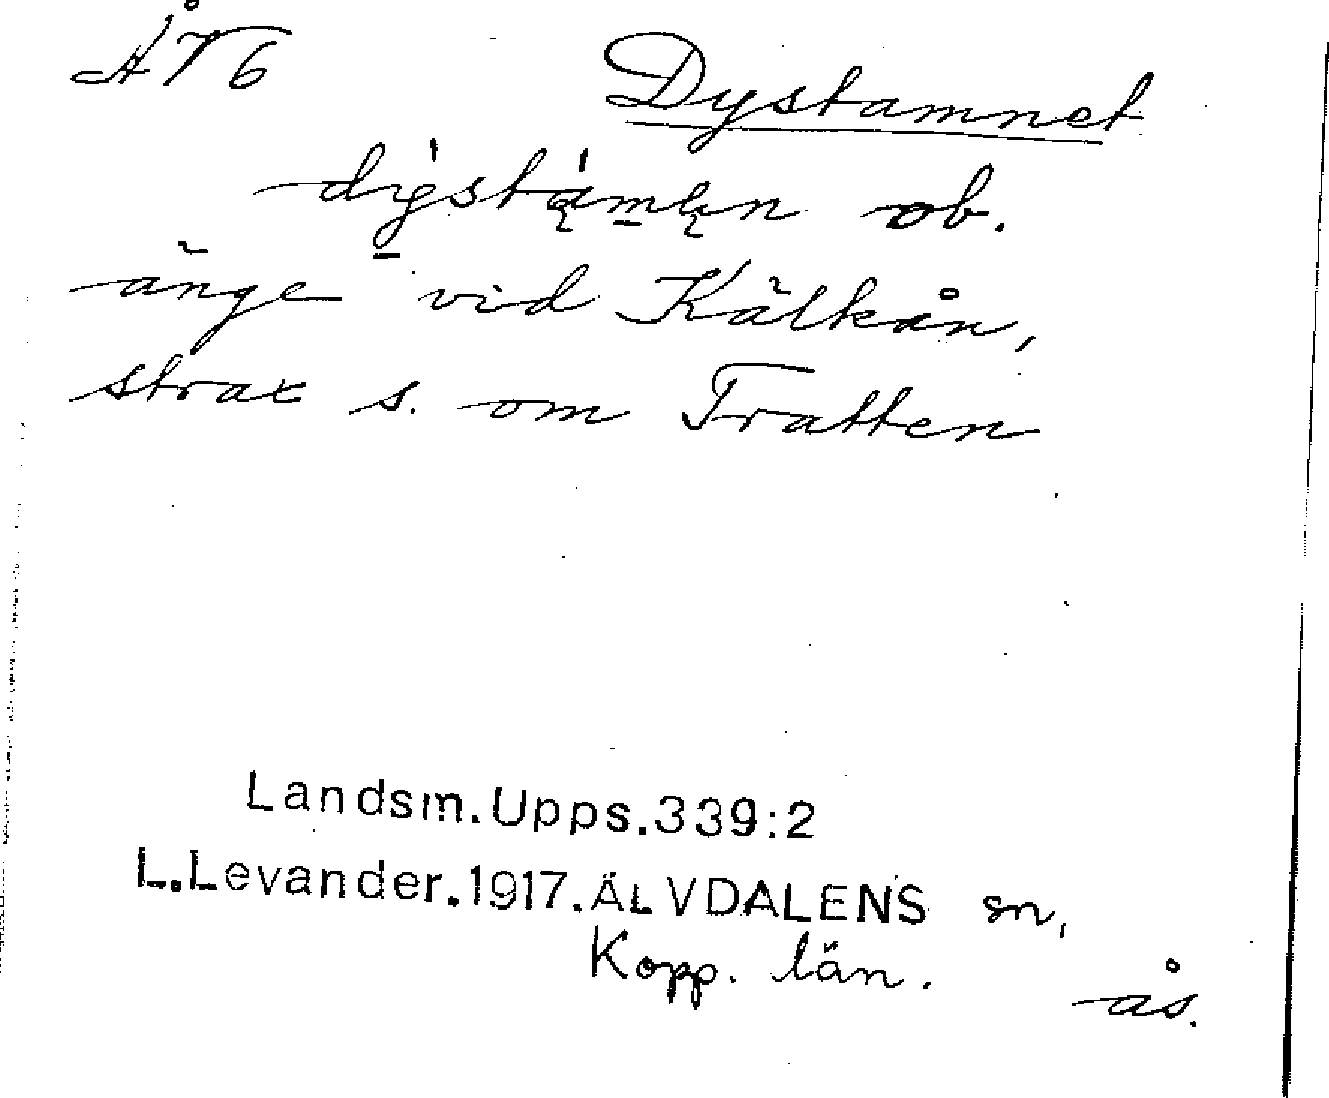 ÅT6 Dystamnet
ob.
änge vid Kälkån,
strax s. om Tratten
Landsm.Upps.339:2
L.Levander.1917.ÄLVDALENS sn,
Kopp. län.
ås.